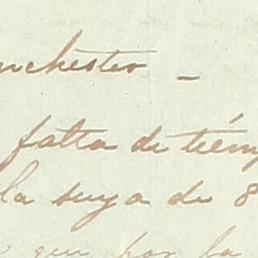 nchester -
falta de tiém
la suya de 8
que por la